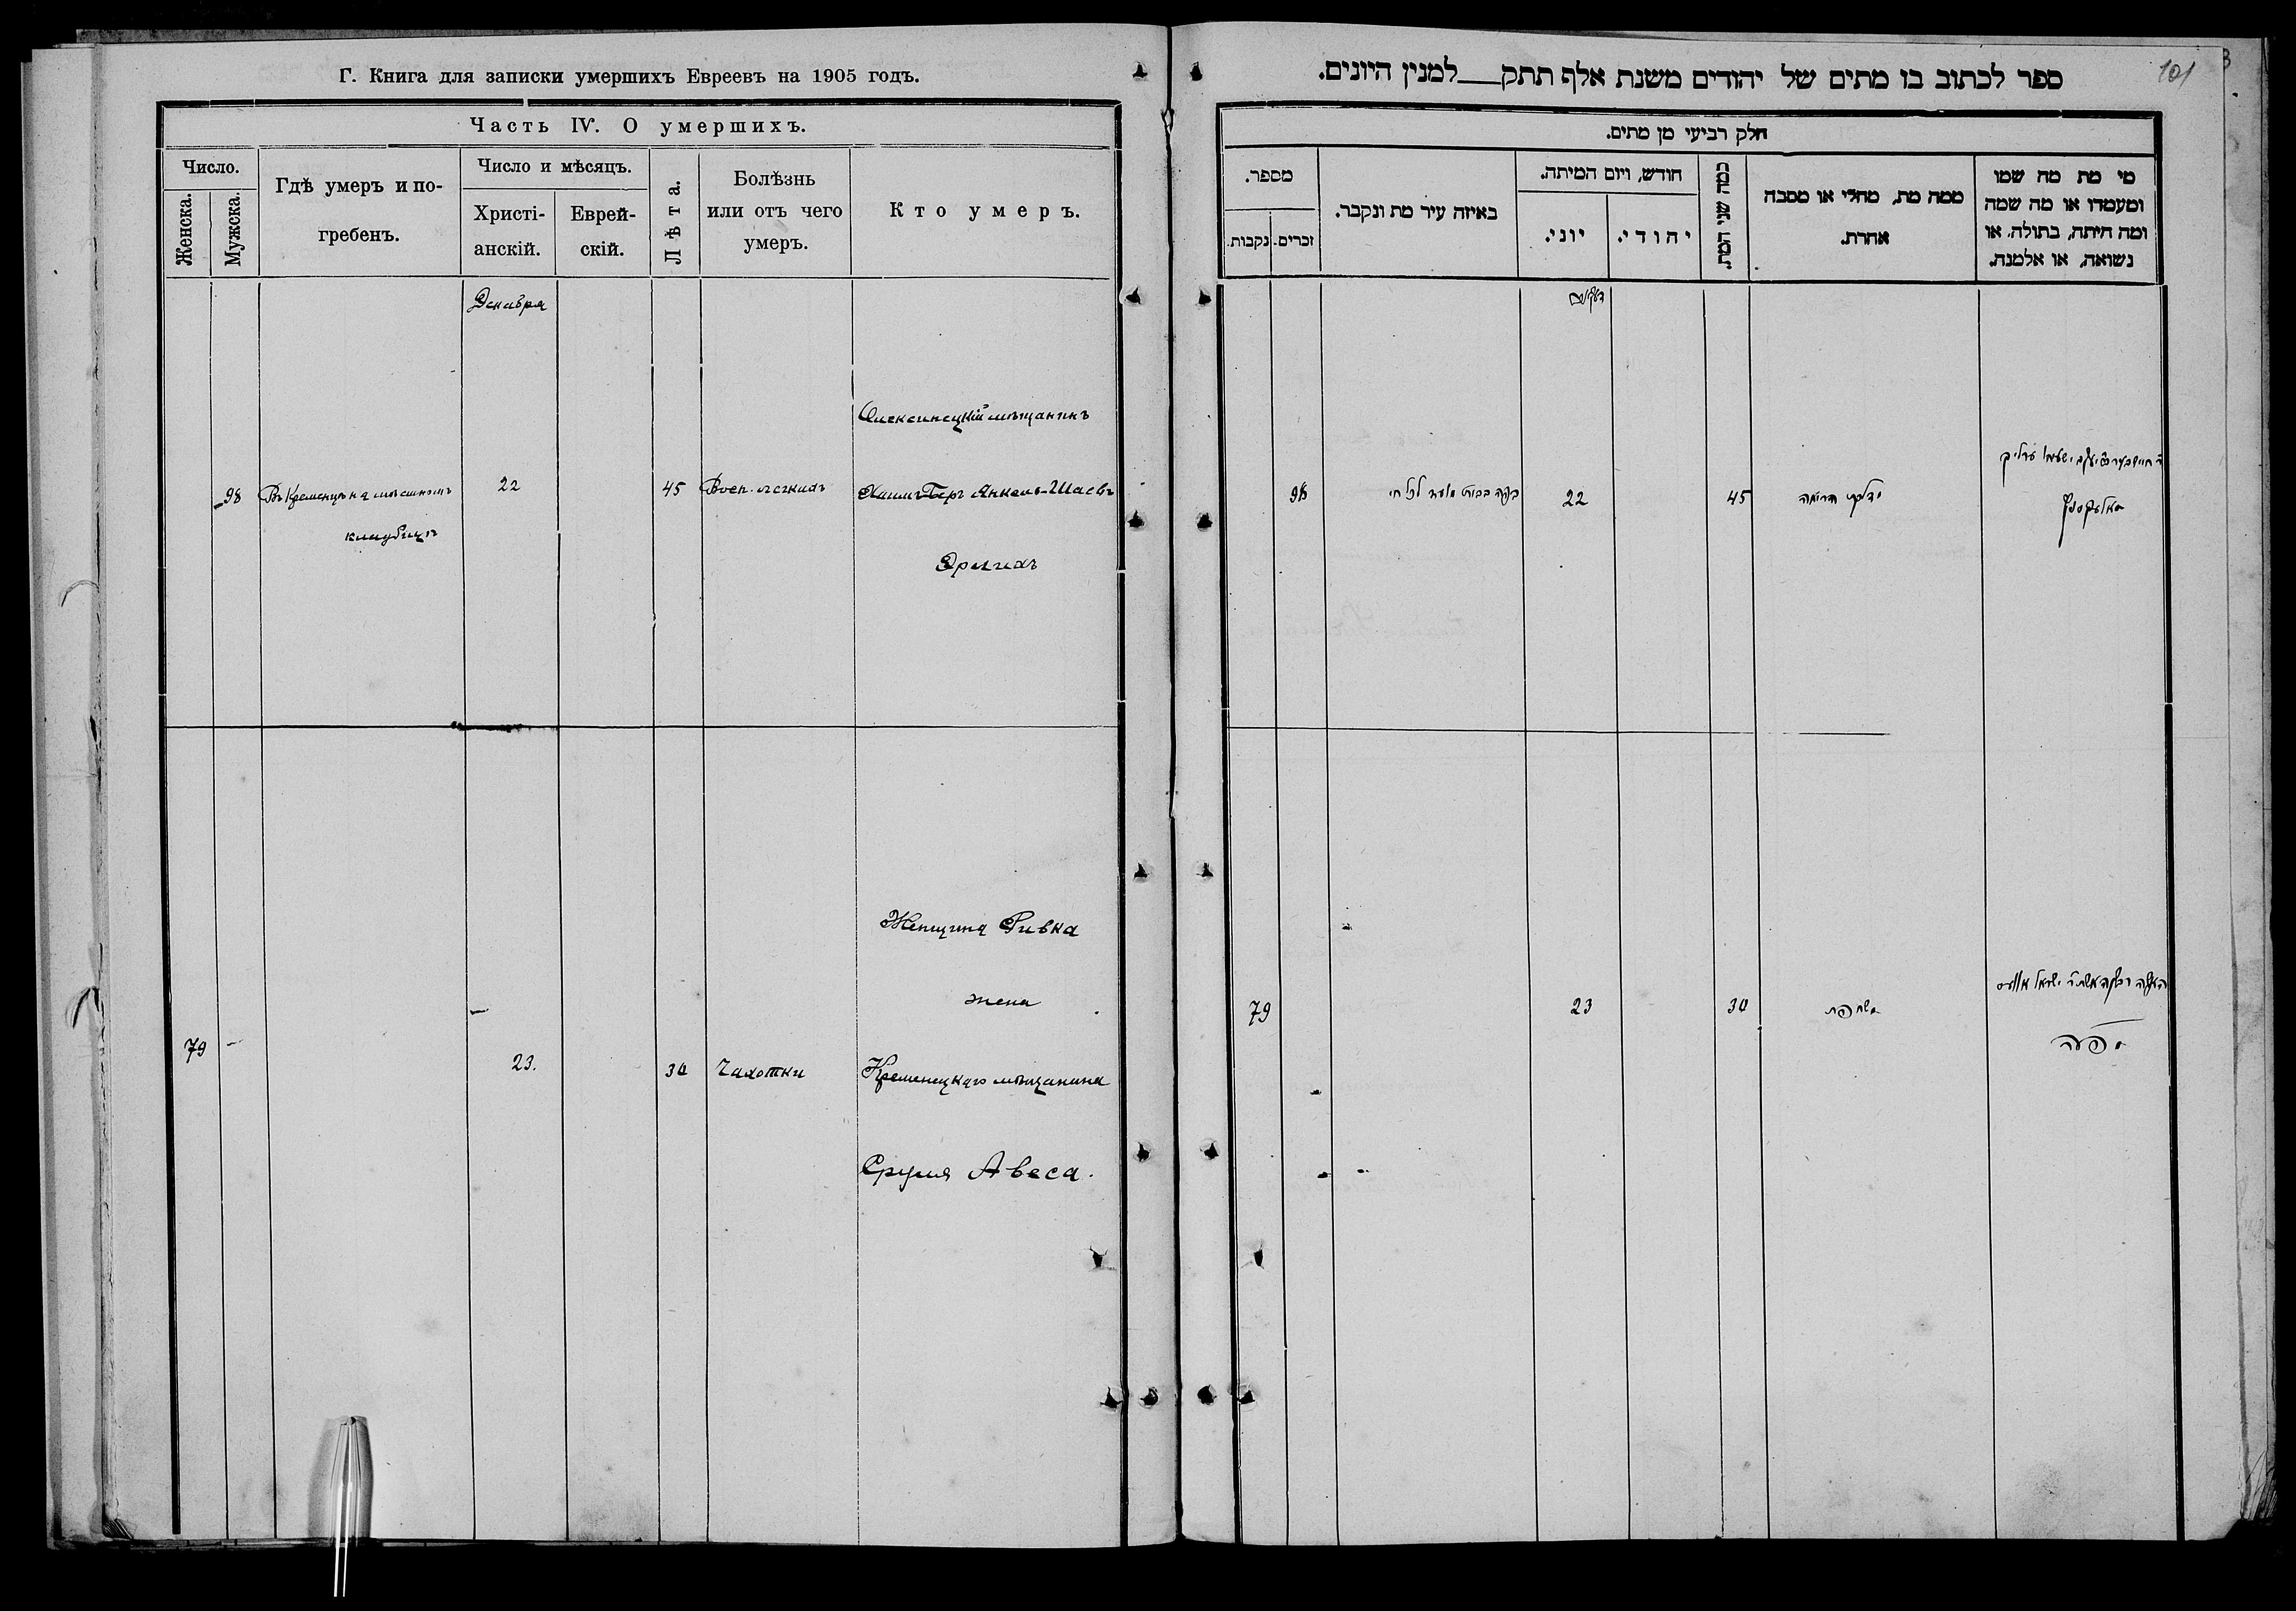 Г. Книга для записки умершихъ Евреевъ на 1905 годъ.
Часть IV. О умершихъ.
Число.
Женска.
Мужска.
Гдѣ умеръ и по-
гребенъ.
Число и мѣсяцъ.
Христі-
анскій.
Еврей-
скій.
Лѣта.
Болѣзнь
или отъ чего
умеръ.
Кто умеръ.
Декабря
Олексинецкій мѣщанинъ
98 Въ Кременцѣ на мѣстномъ 22 45 Восп. легкихъ Хаимъ-Беръ Янкель-Шаевъ
кладбищѣ
Эрлихъ
Женщина Ривка
жена
79 23. 30 Чахотки Кременецкаго мѣщанина
Сруля Авеса.
101
ספר לכתוב בו מתים של יהודים משנת אלף תתק למנין היונים.
חלק רביעי מן מתים.
מספר.
נקבות.
זכרים.
באיזה עיר מת ונקבר.
חודש, ויום המיתה.
יוני.
יהודי.
כמה שני המת.
ממה מת, מחלי או מסבה
אחרת.
מי מת מה שמו
ומעמדו או מה שמה
ומה היתה, בתולה, או
נשואה, או אלמנה.
98 22 45
79 23 30